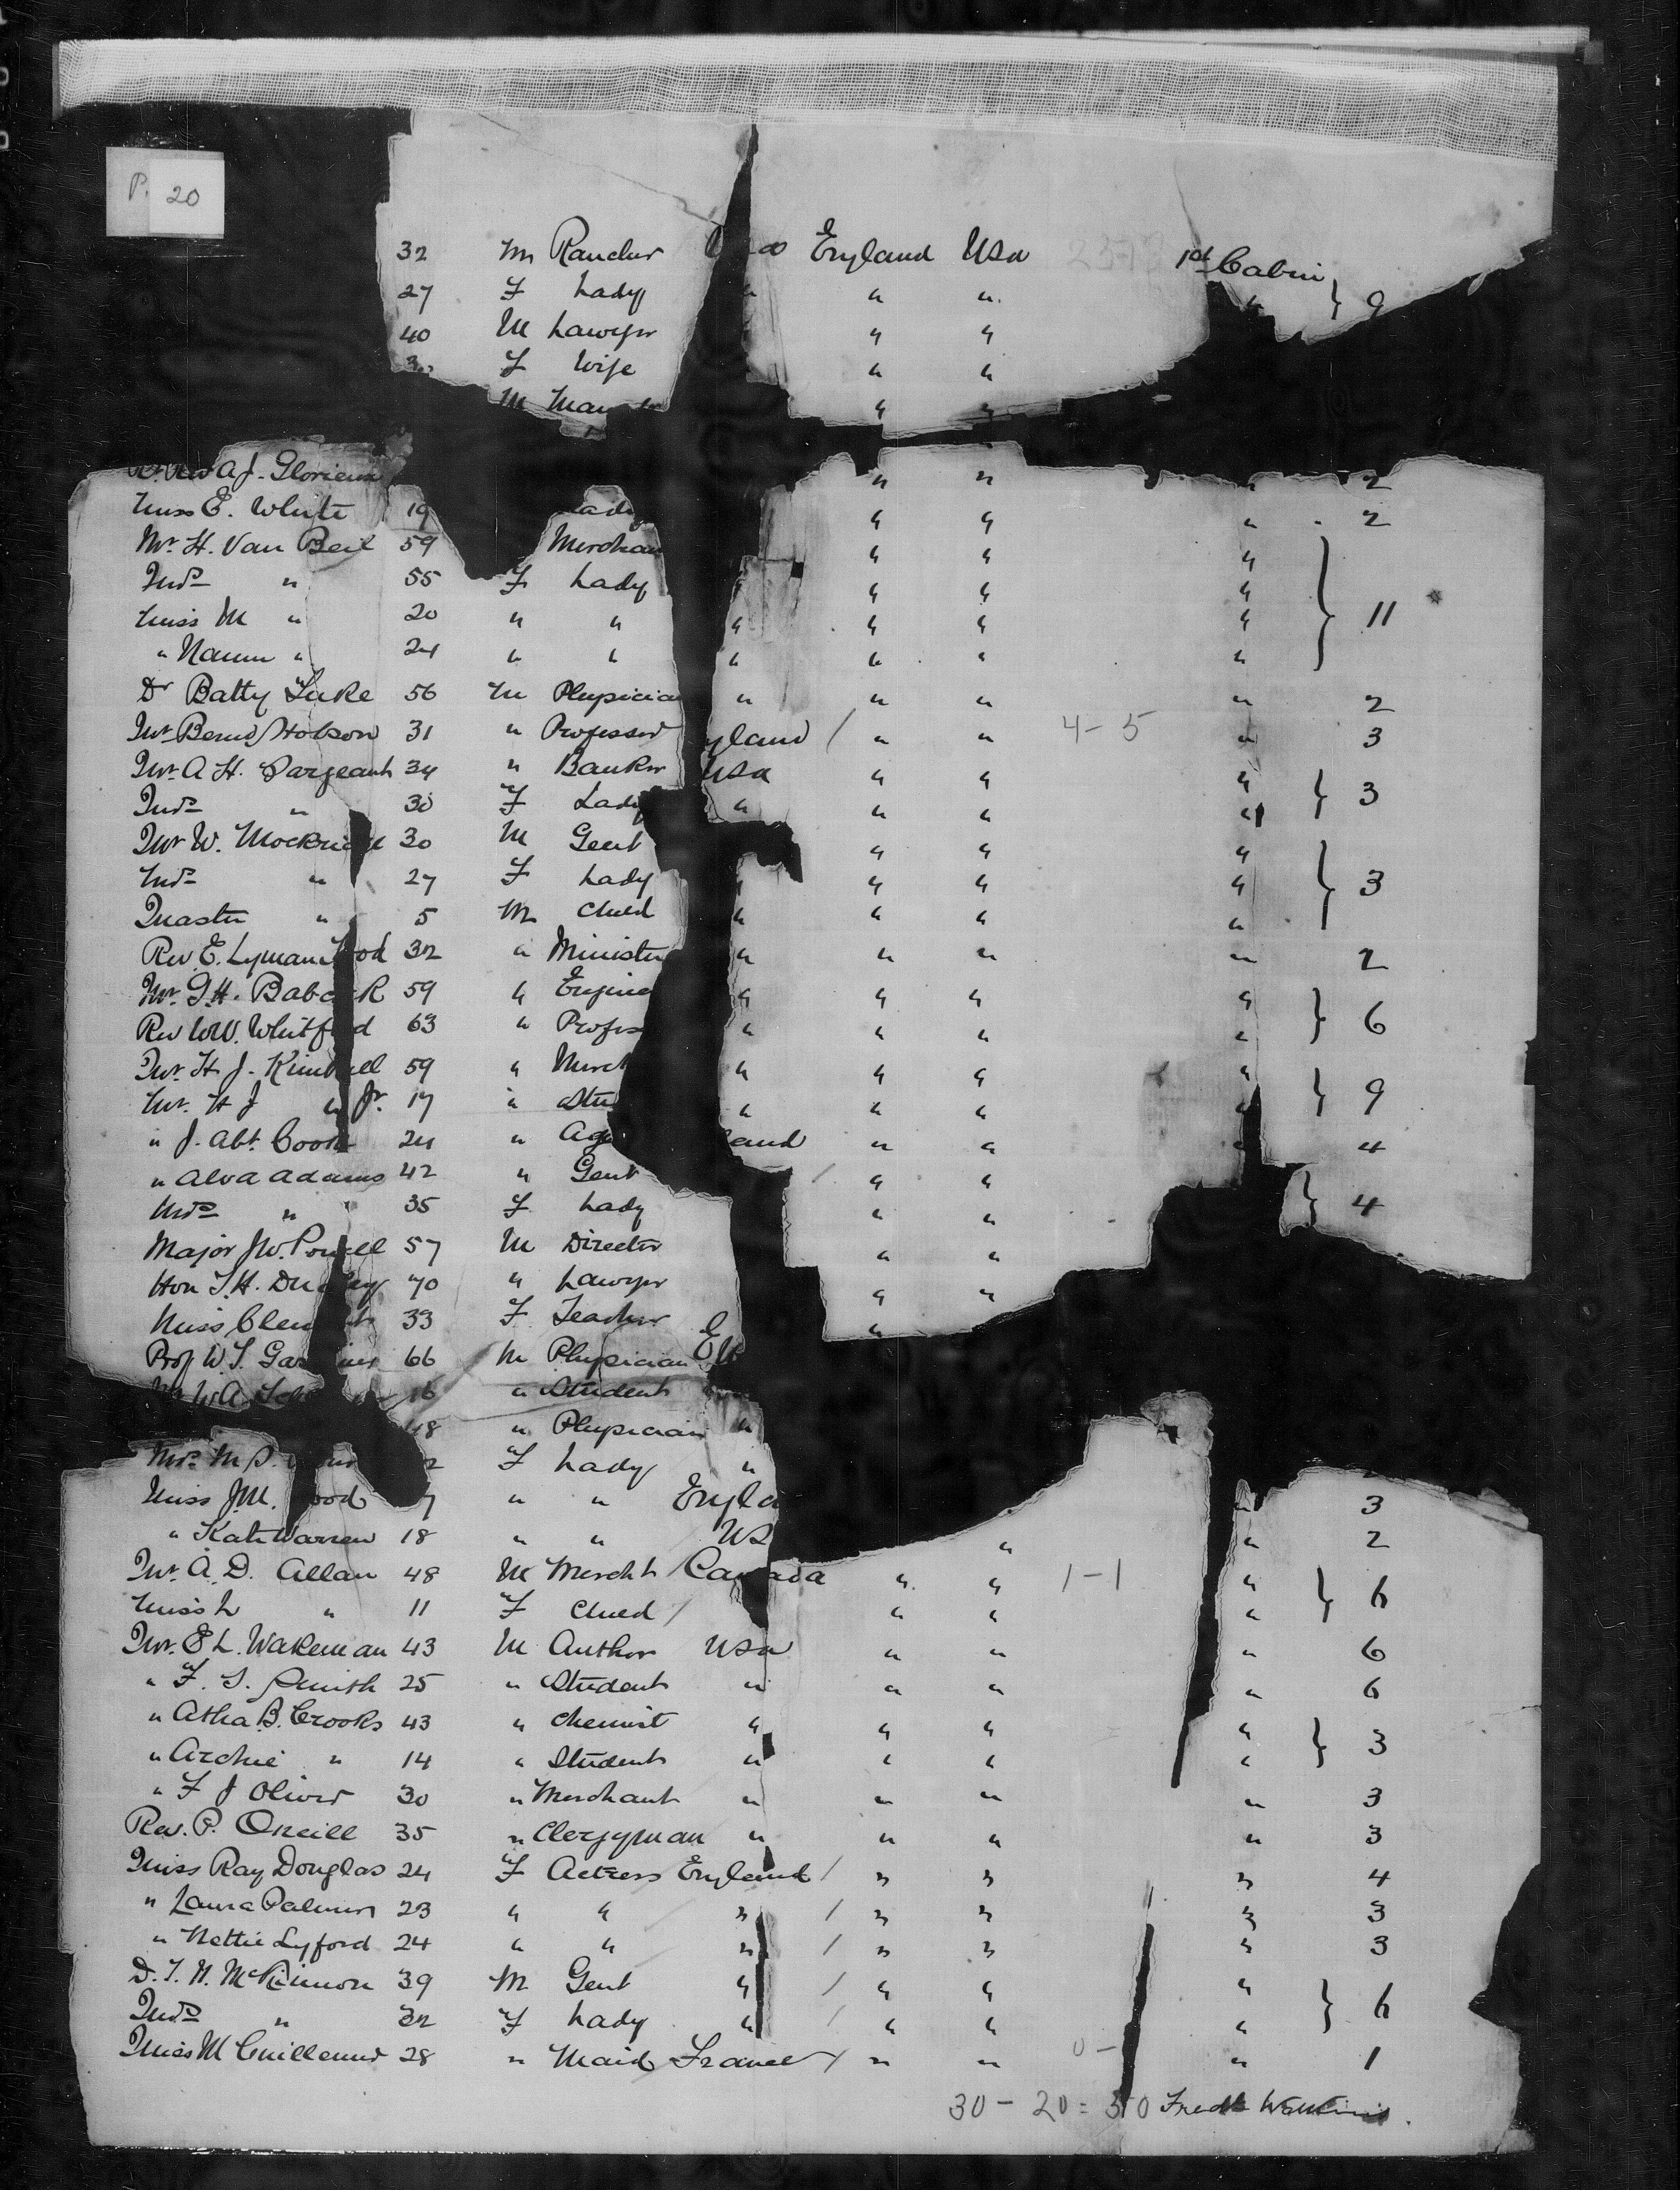 P. 20
32 M Rancher England Usa 1st Cabin
27 F Lady " " " } 9
40 M Lawyer " "
F Wife " "
M " "
A J. Glorieux " " " 2
Miss E. White 19 Lady " " " 2
Mr. H. Van Beil 59 Merchan " " "
Mrs " 55 F Lady " " "
Miss M " 20 " " " " " " } 11
" " 24 " " " " " "
Dr Batty Tuke 56 M Physicia " " " " 2
Mr Hobson 31 " Professor gland / " " 4-5 " 3
Mr. A. H. Sargeant 34 " Banker Usa " " "
Mrs " 30 F Lady " " " " } 3
Mr W. Mockri 30 M Gent " " "
Mrs " 27 F Lady " " " " } 3
Master " 5 M Child " " " "
Rev E. Lyman od 32 " Minister " " " " 2
Mr. G. H. Babc k 59 " Engine " " " "
Rev W. Whitf d 63 " Profes " " " " } 6
Mr. H. J. Kimb ll 59 " Merch " " " "
Mr. H J " Jr. 17 " Stu " " " " } 9
" J. Abt. Cook 24 " Ag land " " " 4
" Alva Adams 42 " Gent / " "
Mrs " 35 F Lady " " } 4
Major J W. Powell 57 M Director " "
Hon T. H. Du ey 70 " Lawyer " "
Miss Clem 33 F Teacher "
Prof W. T. Ga 66 M Physician
W. A. 16 " Student
48 " Physician "
Mrs M S. 2 F Lady "
Miss J. M. ood 7 " " Engla " 3
" Kate Warren 18 " " US " " 2
Mr. A. D. Allan 48 M Mercht / Canada " " 1-1 "
Miss L " 11 F Child / " " " } 6
Mr. E L. Wakeman 43 M Author Usa " " " 6
" F. S. Smith 25 " Student " " " " 6
" Atha B. Crooks 43 " Chemist " " " "
" Archie " 14 " Student " " " " } 3
" F J Oliver 30 " Merchant " " " " 3
Rev. P. Oneill 35 " Clergyman " " " " 3
Miss Ray Douglas 24 F Actress England / " " " 4
" Laura Palmer 23 " " " / " " " 3
" Nettie Lyford 24 " " " / " " " 3
D. T. H. McKinnon 39 M Gent " / " " "
Mrs " 32 F Lady " / " " " } 6
Miss M Guillemur 28 " Maid France / " " 0- " 1
30 - 20 = 50 Fredk